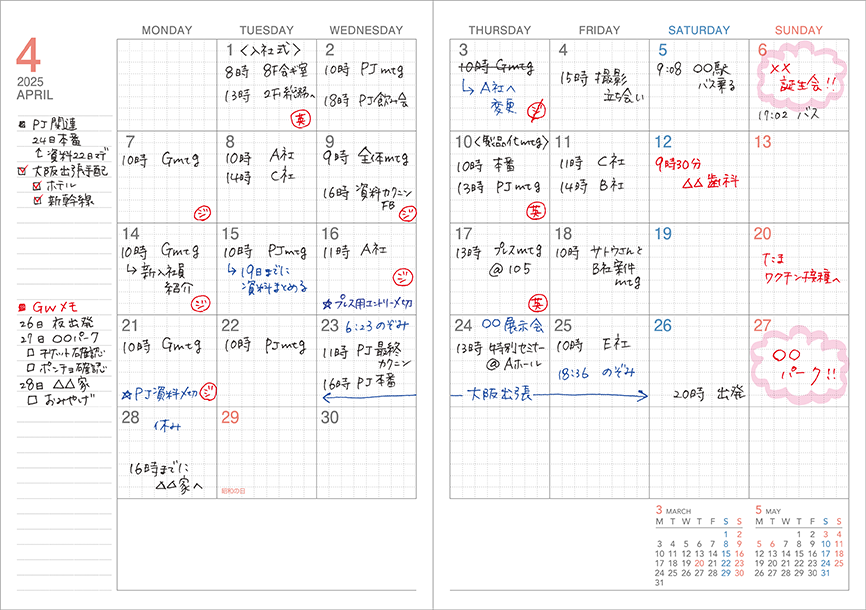 4
2025
APRIL
PJ関連
24日本番
↑資料22日まで
大阪出張手配
ホテル
新幹線
GWメモ
26日 夜出発
27日 〇〇パーク
チケット確認
ポンチョ確認
28日 △△家
おみやげ
MONDAY TUESDAY WEDNESDAY THURSDAY FRIDAY SATURDAY SUNDAY
1 〈入社式〉
8時 8F会ギ室
13時 2F総務へ
英
2
10時 PJmtg
18時 PJ飲み会
3
10時 Gmtg
↳ A社へ
変更
ジ
4
15時 撮影
立ち会い
5
9:08 〇〇駅
バス乗る
6
××
誕生会!!
17:02 バス
7
10時 Gmtg
ジ
8
10時 A社
14時 C社
9
9時 全体mtg
16時 資料カクニン
FB
ジ
10 〈製品化mtg〉
10時 本番
13時 PJmtg
英
11
11時 C社
14時 B社
12
9時30分
△△歯科
13
14
10時 Gmtg
↳ 新入社員
紹介
ジ
15
10時 PJmtg
↳ 19日までに
資料まとめる
16
11時 A社
ジ
☆プレス用エントリー〆切
17
13時 プレスmtg
@105
英
18
10時 サトウさんと
B社案件
mtg
19
20
たま
ワクチン接種へ
21
10時 Gmtg
☆PJ資料〆切
ジ
22
10時 PJmtg
23 6:23のぞみ
11時 PJ最終
カクニン
16時 PJ本番
24 〇〇展示会
13時 特別セミナー
@Aホール
大阪出張
25
10時 E社
18:36 のぞみ
26
20時 出発
27
〇〇
パーク!!
28 休み
16時までに
△△家へ
29
昭和の日
30
3 MARCH
M T W T F S S
1 2
3 4 5 6 7 8 9
10 11 12 13 14 15 16
17 18 19 20 21 22 23
24 25 26 27 28 29 30
31
5 MAY
M T W T F S S
1 2 3 4
5 6 7 8 9 10 11
12 13 14 15 16 17 18
19 20 21 22 23 24 25
26 27 28 29 30 31